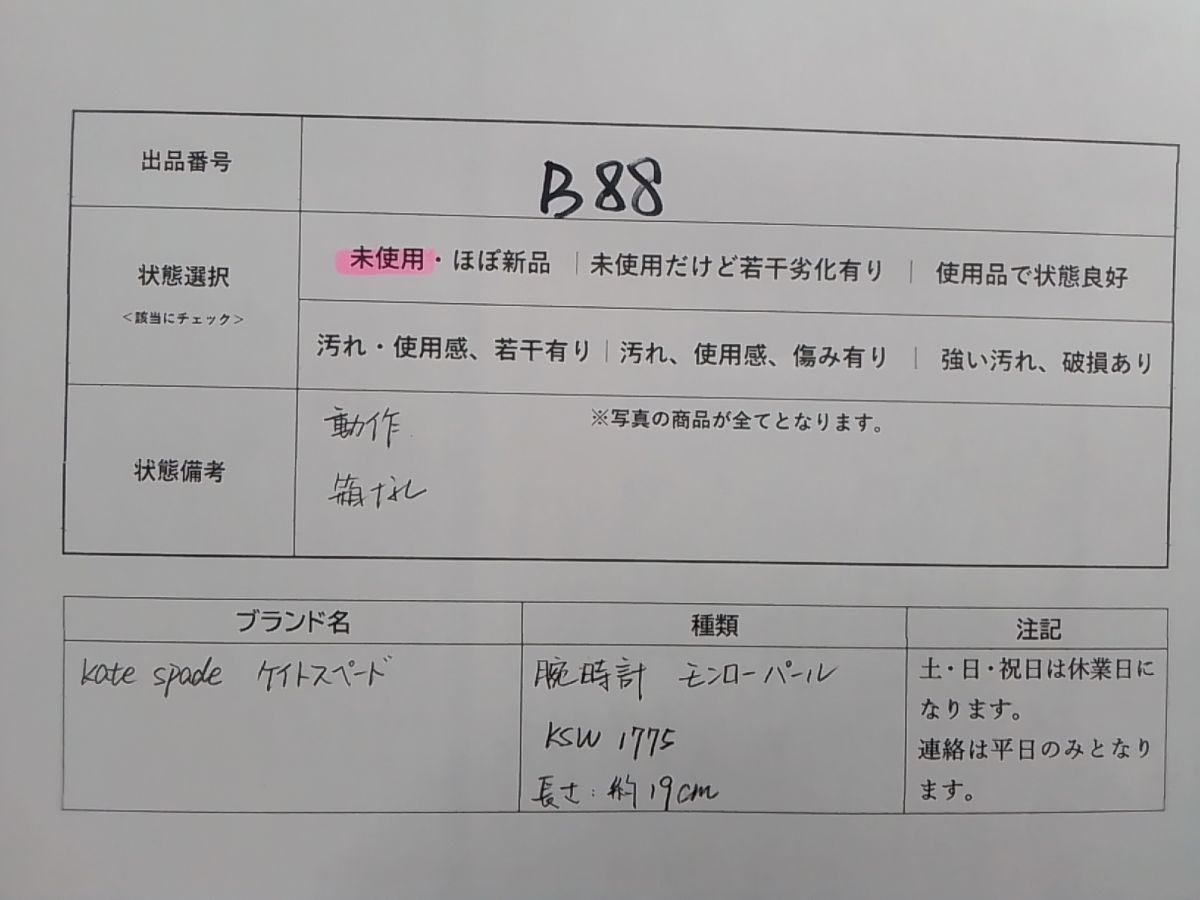 出品番号
B88
状態選択
<該当にチェック>
未使用・ほぼ新品 | 未使用だけど若干劣化有り | 使用品で状態良好
汚れ・使用感、若干有り | 汚れ、使用感、傷み有り | 強い汚れ、破損あり
状態備考
動作
※写真の商品が全てとなります。
箱ナシ
ブランド名
種類
注記
kate spade ケイトスペード
腕時計 モンローパール
KSW 1775
長さ:約19cm
土・日・祝日は休業日に
なります。
連絡は平日のみとなり
ます。